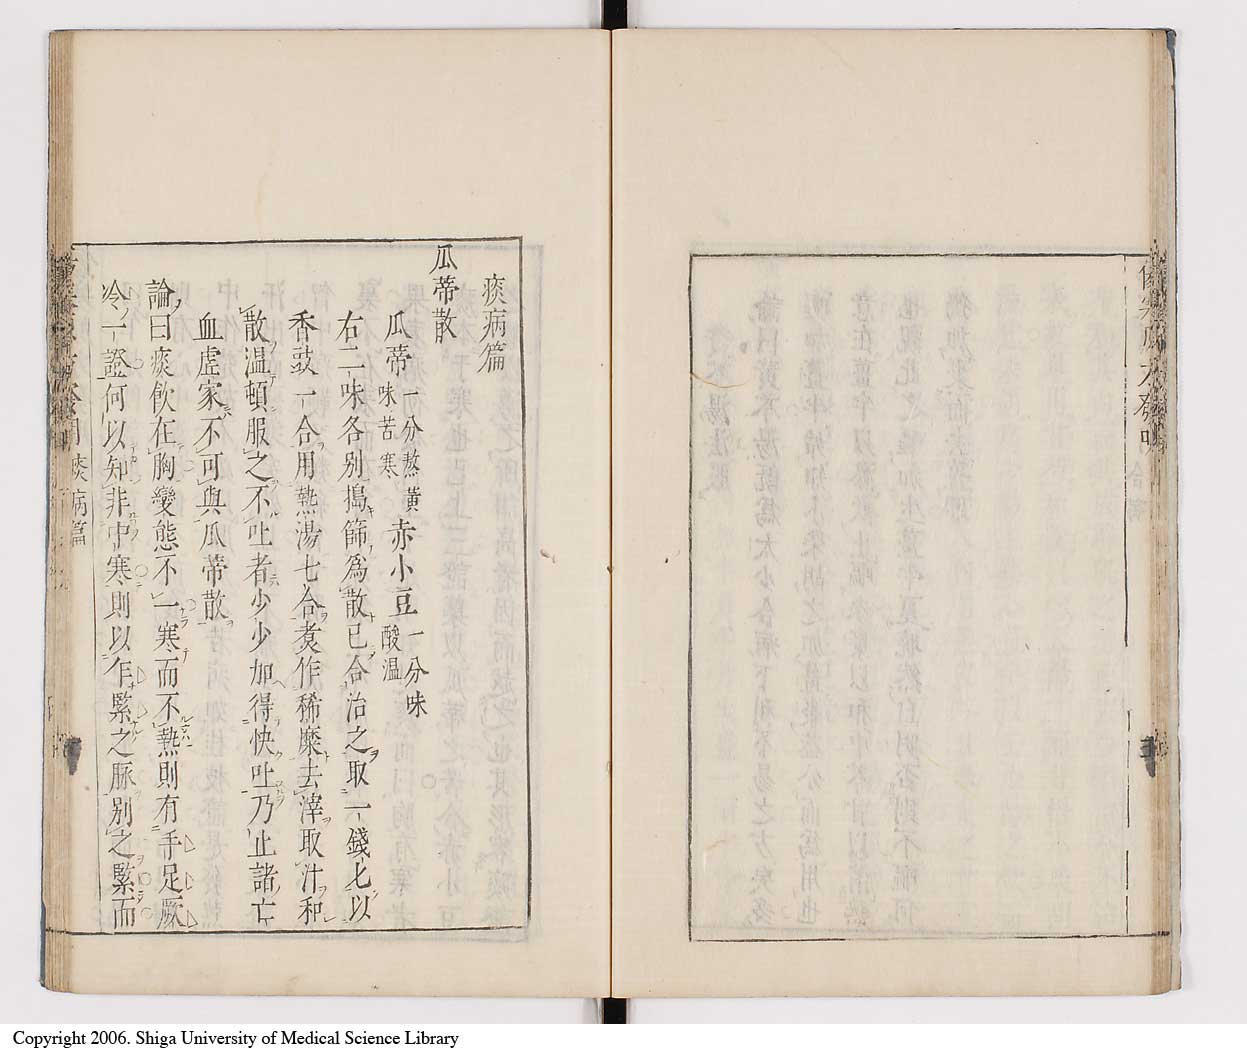 痰病篇
瓜蒂散
瓜蒂 一分熬黃 味苦寒 赤小豆 一分味 酸温
右二味各別搗篩爲散已合治之取一錢匕以
香豉一合用熱湯七合煑作稀糜去滓取汁和
散温頓服之不吐者少少加得快吐乃止諸亡
血虛家不可與瓜蒂散
論曰痰飲在胸變態不一寒而不熱則有手足厥
冷一證何以知非中寒則以乍緊之脈別之緊而
痰病篇
Copyright 2006. Shiga University of Medical Science Library